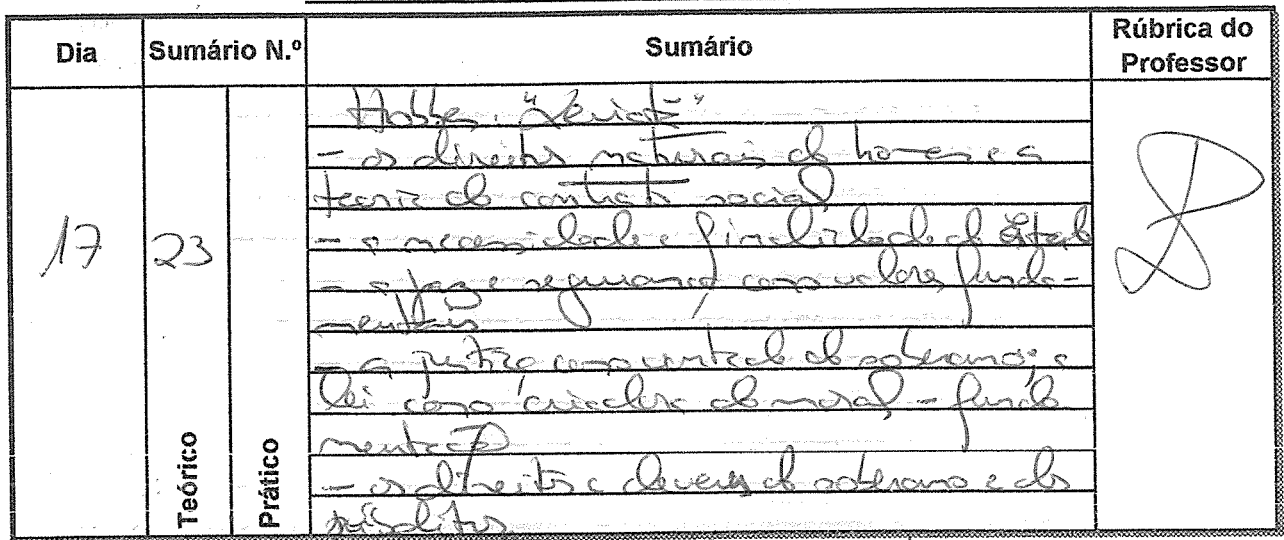 Dia
Sumário N.º
Sumário
Rúbrica do
Professor
Hobbes. "Leviatã"
- os direitos naturais do homem e a
teoria do contrato social
17
23
- a necessidade e finalidade do Estado
- a paz e segurança como valores funda-
mentais
- a justiça como vontade do soberano; a
lei como criadora da moral - funda
mentação
- os direitos e deveres do soberano e dos
súbditos
Teórico
Prático